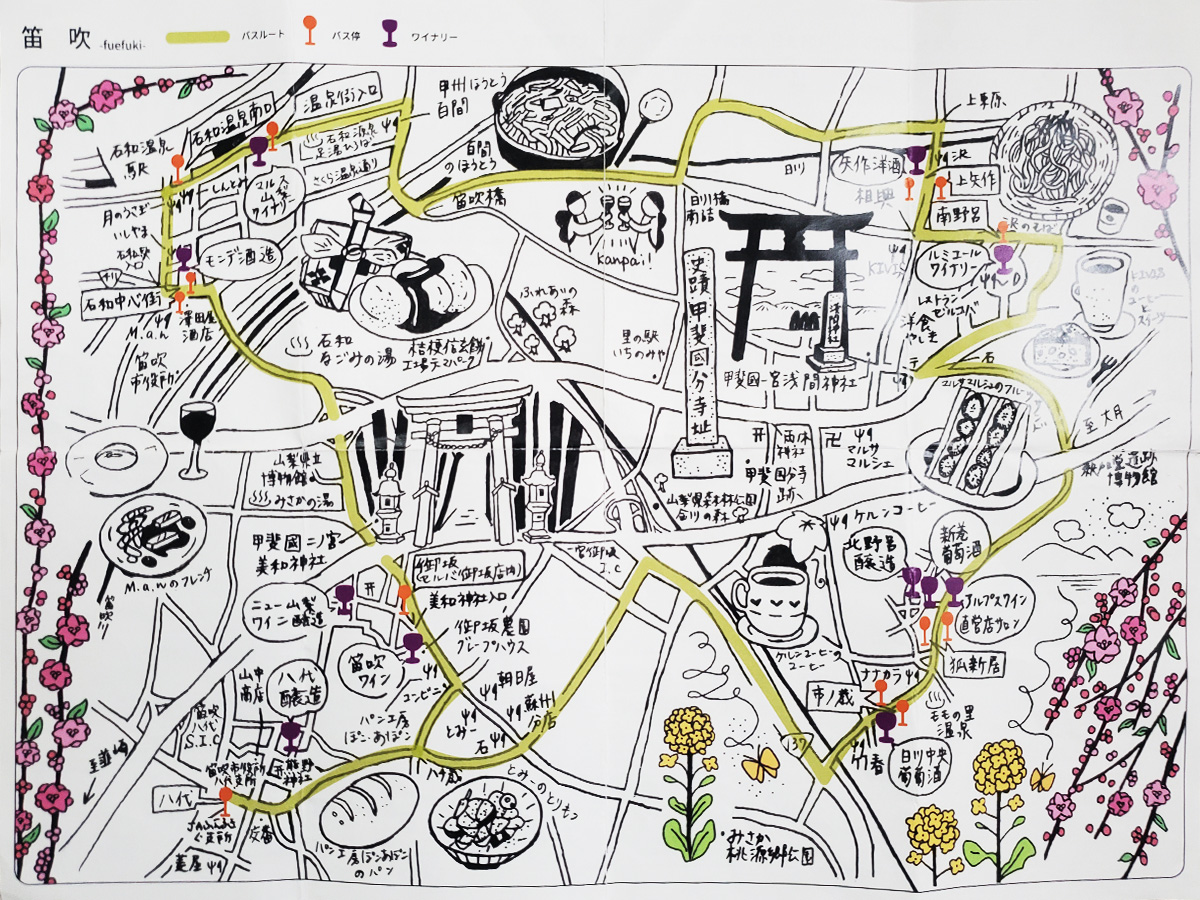 笛吹 -fuefuki-
バスルート
バス停
ワイナリー
石和温泉
駅
石和温泉南口
温泉街入口
石和源泉
足湯ひろば
さくら温泉通り
しんとみ
マルス
山梨
ワイナリー
月のうさぎ
いしやま
モンデ酒造
石和中心街
M.a.n
澤田屋
酒店
笛吹
市役所
甲州ほうとう
百間
百間
のほうとう
笛吹橋
kanpai!
日川橋
南詰
日川
矢作洋酒
相興
上栗原
沢
上矢作
南野呂
沢のそば
ルミエール
ワイナリー
KIVIS
レストラン
ゼルコバ
洋食
やしま
KIVISの
コーヒー
と
スイーツ
石和
なごみの湯
桔梗信玄餅
工場テーマパーク
ふれあいの
森
里の駅
いちのみや
史蹟甲斐國分寺址
浅間神社
甲斐國一宮浅間神社
石
マルサマルシェのフルーツサンド
至大月
両休
神社
マルサ
マルシェ
甲斐国分寺
跡
山梨県森林公園
金川の森
釈迦堂遺跡
博物館
山梨県立
博物館
みさかの湯
甲斐國二ノ宮
美和神社
M.a.nのフレンチ
笛吹川
一宮御坂
I.C
ケルンコーヒー
ケルンコーヒーの
コーヒー
北野呂
醸造
新巻
葡萄酒
アルプスワイン
直営店サロン
狐新居
ナナカラ
市ノ蔵
ももの里
温泉
竹香
日川中央
葡萄酒
137
御坂
(セルバ御坂店内)
美和神社入口
ニュー山梨
ワイン醸造
御坂農園
グレープハウス
笛吹
ワイン
コンビニ
朝日屋
蘇州
分店
とみー
石
パン工房
ぽこ・あぽこ
山中
商店
八代
醸造
笛吹
八代
S.I.C
至韮崎
笛吹市役所
八代支所
熊野
神社
八代
交番
菱屋
八千蔵
とみーのとりもつ
パン工房ぽこあぽこ
のパン
みさか
桃源郷公園